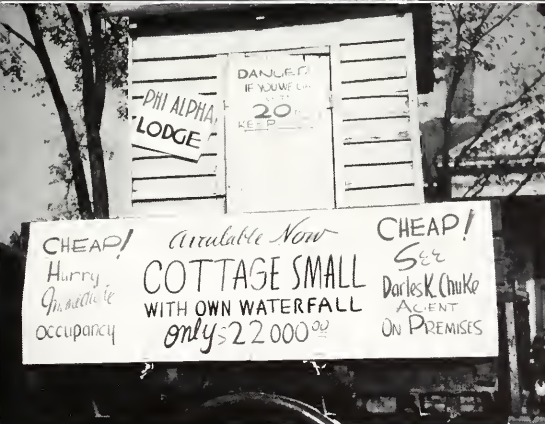 PHI ALPHA
LODGE
DANGER
IF YOU WE
20
KEEP
CHEAP!
Hurry
Immediate
Occupancy
Available Now
COTTAGE SMALL
WITH OWN WATERFALL
only $22000⁰⁰
CHEAP!
SEE
Darles K. Chuke
AGENT
ON PREMISES